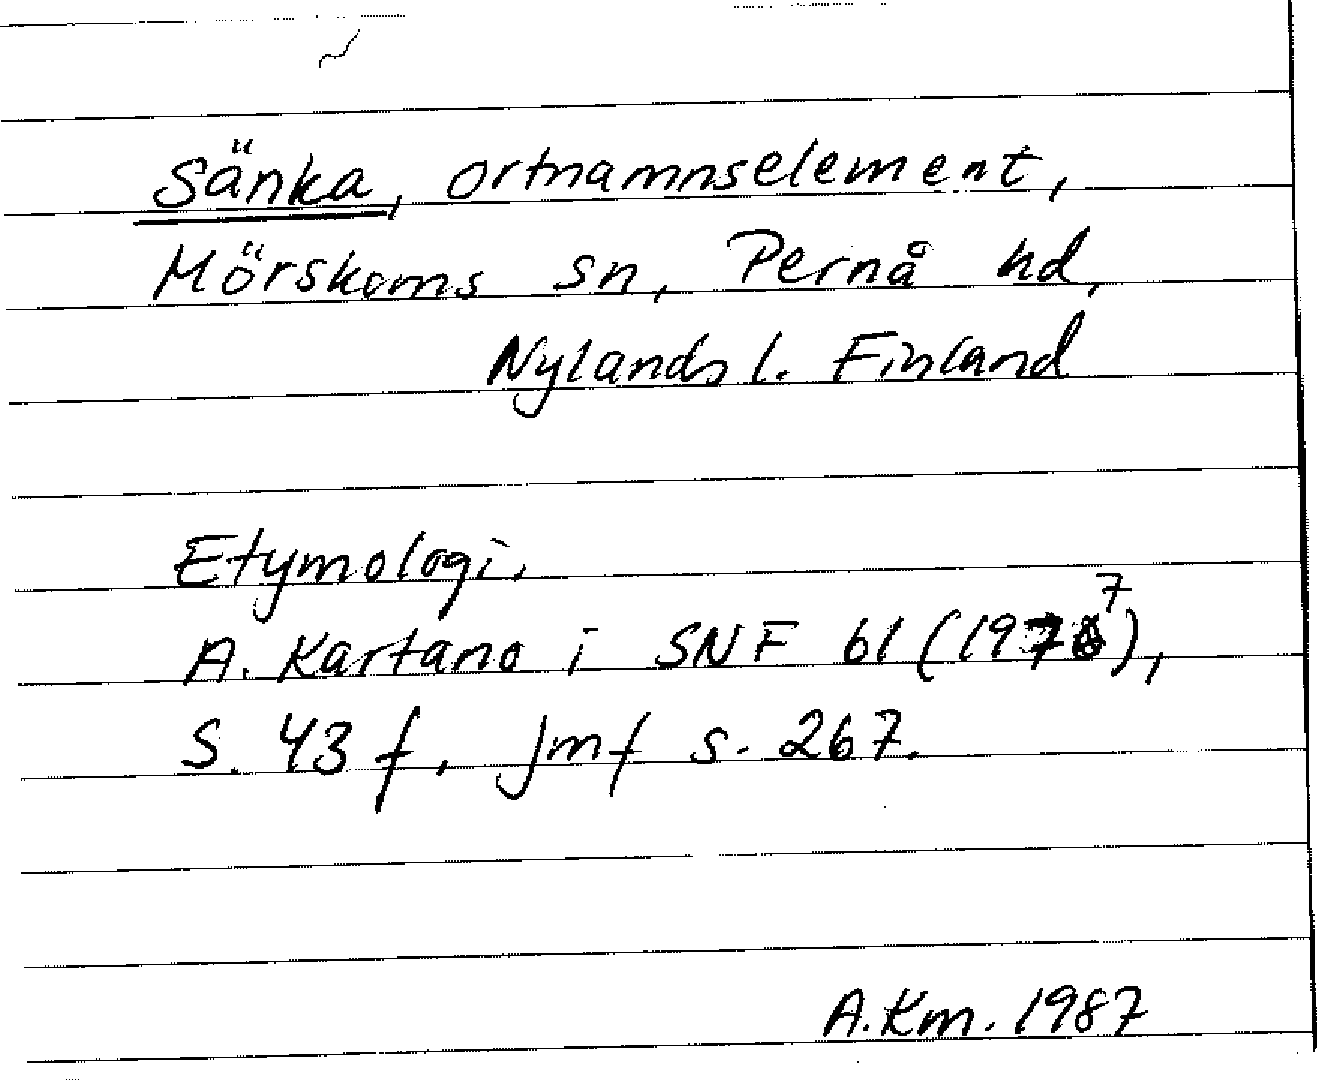 Sänka, ortnamnselement,
Mörskoms sn, Pernå hd,
Nylands l. Finland
Etymologi.
A. Kartano i SNF 61 (1977),
S. 43 f, jmf s. 267.
A.Km. 1987